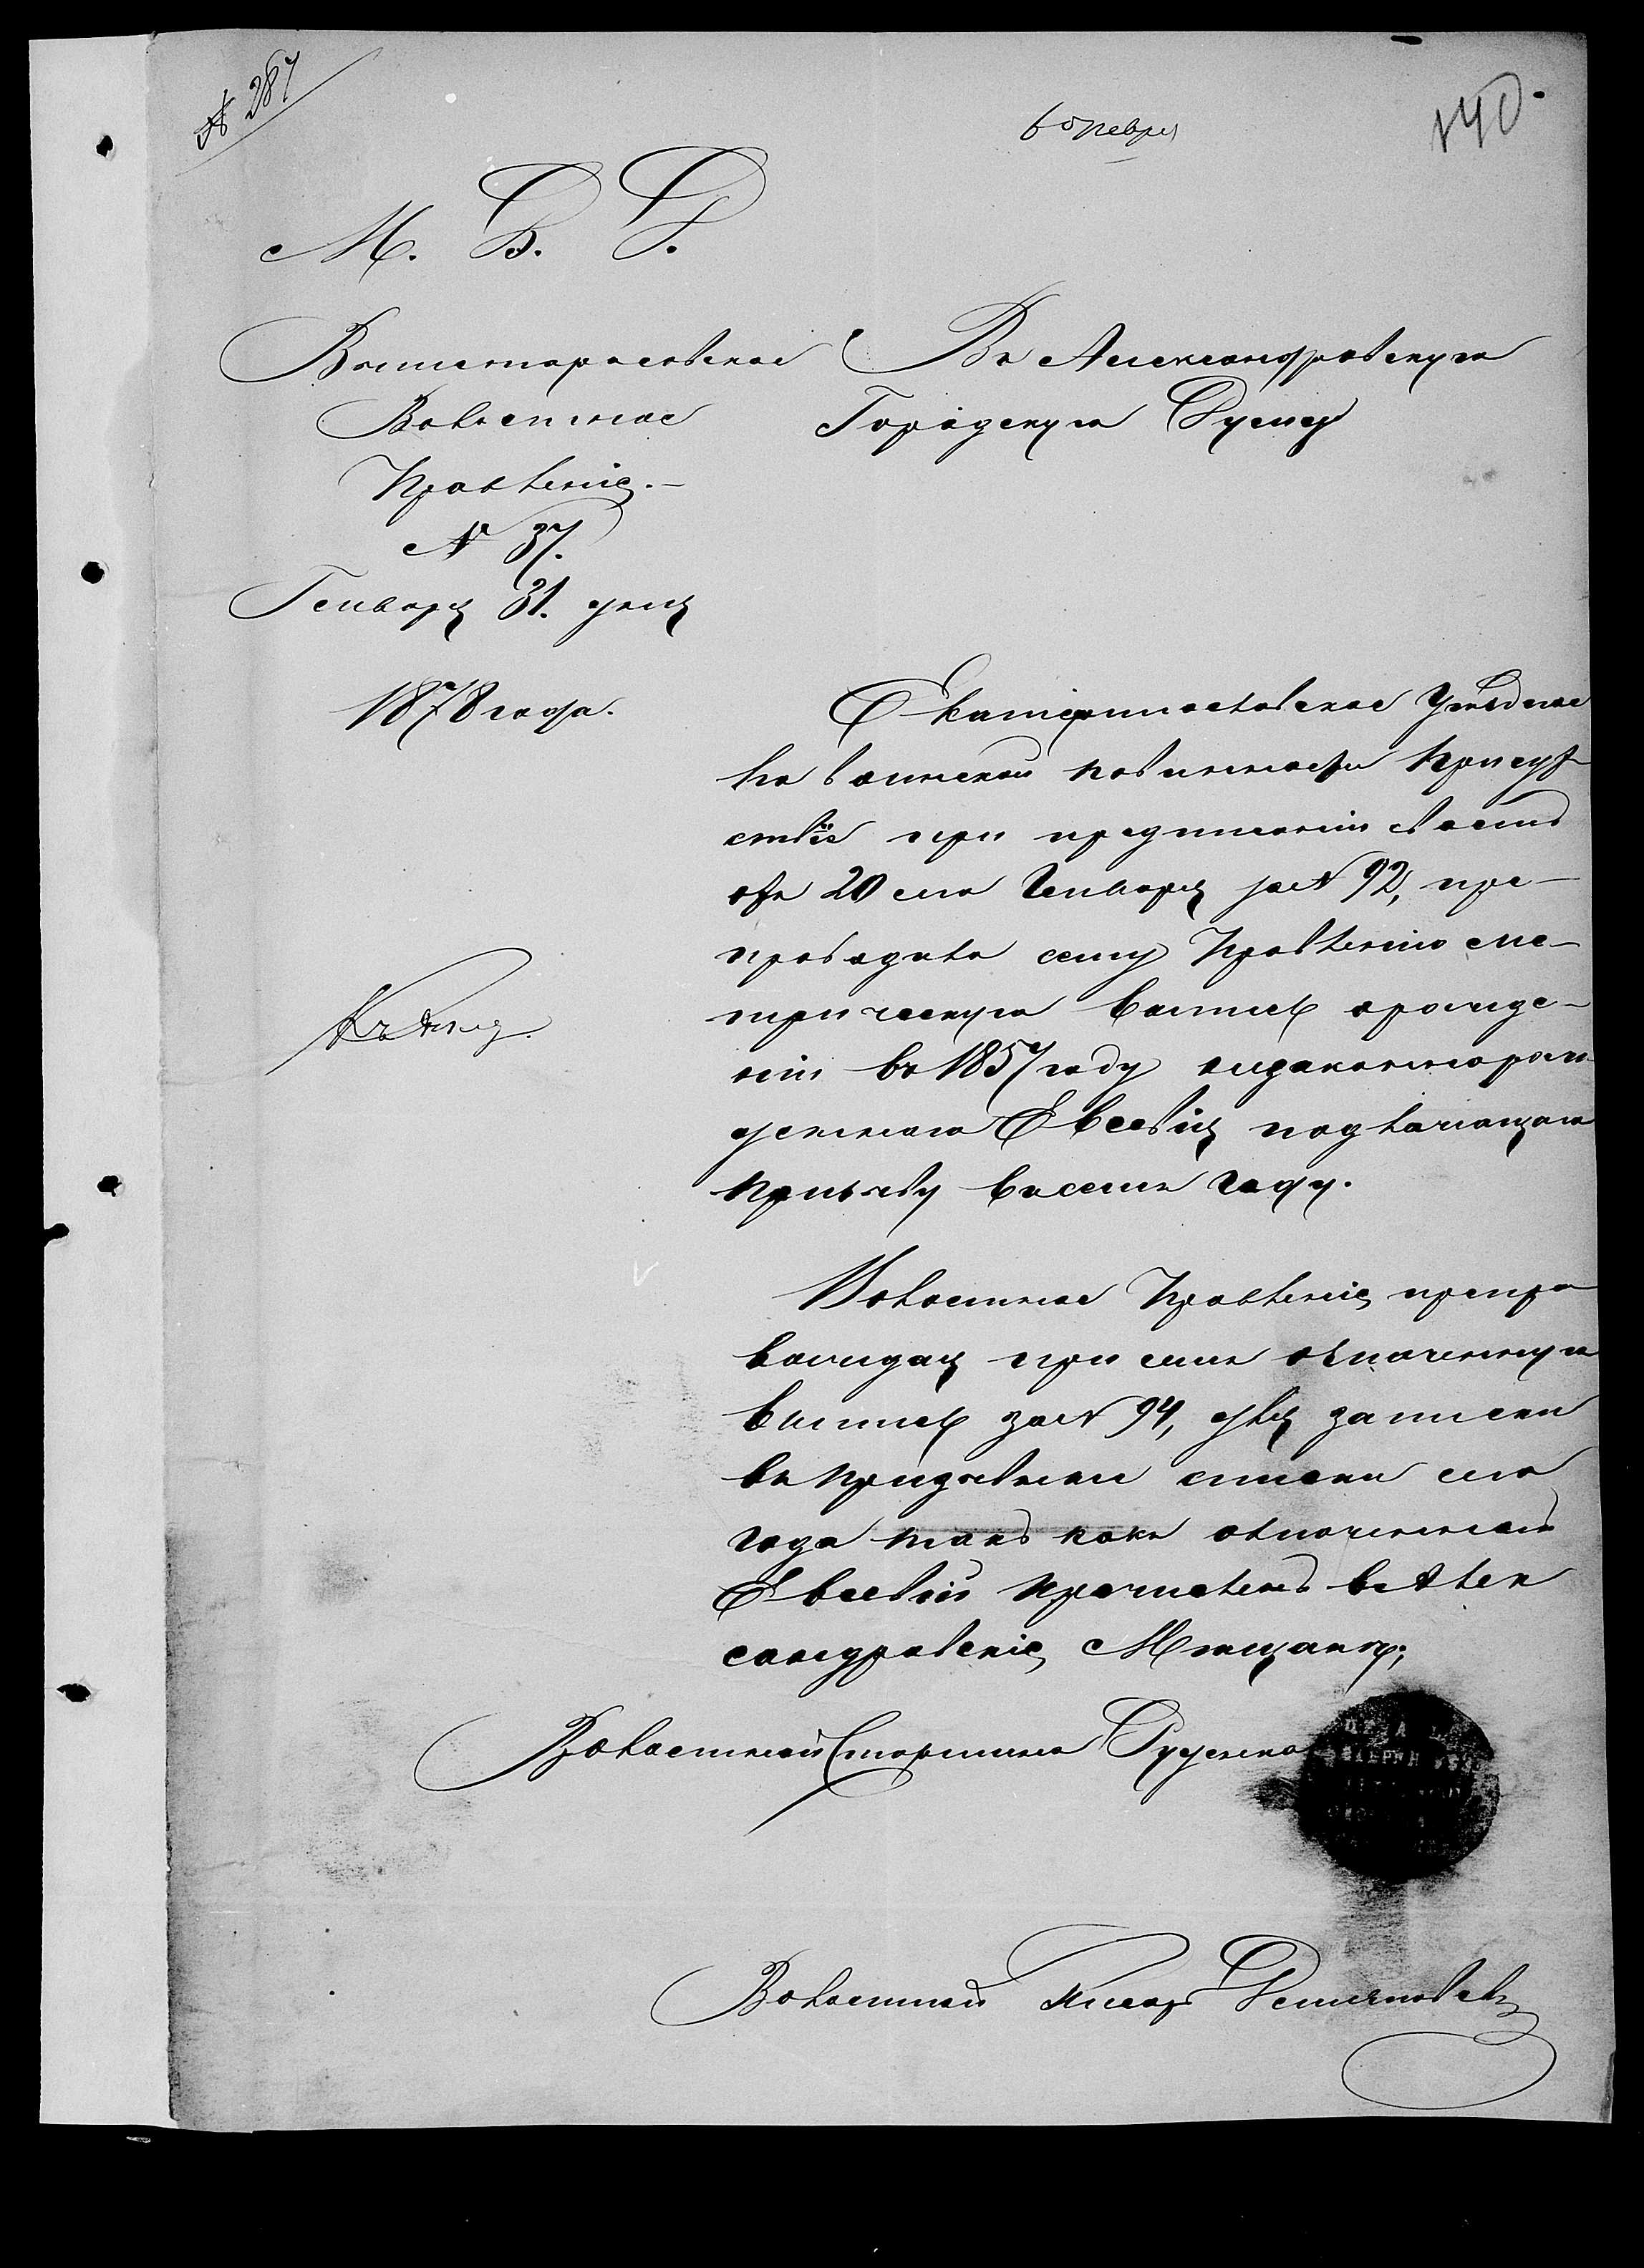 № 287
6 Февря
140.
М. В. Д.
Вышетарасовское
Волостное
Правленіе.—
№ 37.
Генваря 31. дня
1878 года.
Въ Александровскую
Городскую Думу
Екатеринославское Уѣздное
по воинской повинности Присут
ствіе при предписаніи своемъ
отъ 20 сего Генваря за № 92, пре-
проводило сему Правленію ме-
трическую выпись орожде-
ніи въ 1857 году незаконнорож
деннаго Евсевія подлежащаго
призыву всемъ году.
Волостное Правленіе препро
вождая при семъ означенную
выпись за № 94, для записки
въ призывные списки сего
года такъ какъ означенный
Евсевій причисленъ въ Алек
сандровскіе Мещане;
Волостной Старшина Руденко
Волостный Писарь